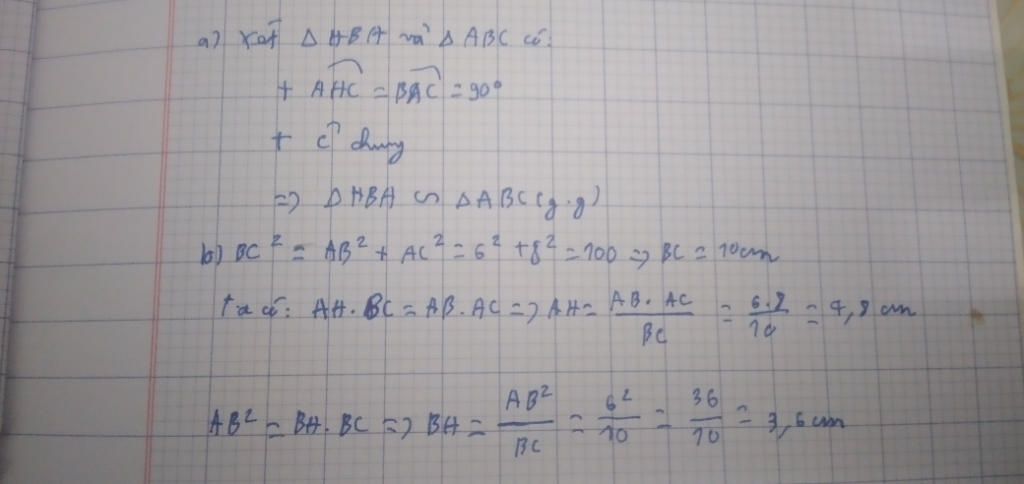 a) Xét △HBA và △ABC có:
+ AHC = BAC = 90°
+ C chung
=> △HBA ∽ △ABC (g.g)
b) BC² = AB² + AC² = 6² + 8² = 100 => BC = 10cm
Ta có: AH.BC = AB.AC => AH = AB.AC/BC = 6.8/10 = 4,8 cm
AB² = BH.BC => BH = AB²/BC = 6²/10 = 36/10 = 3,6 cm